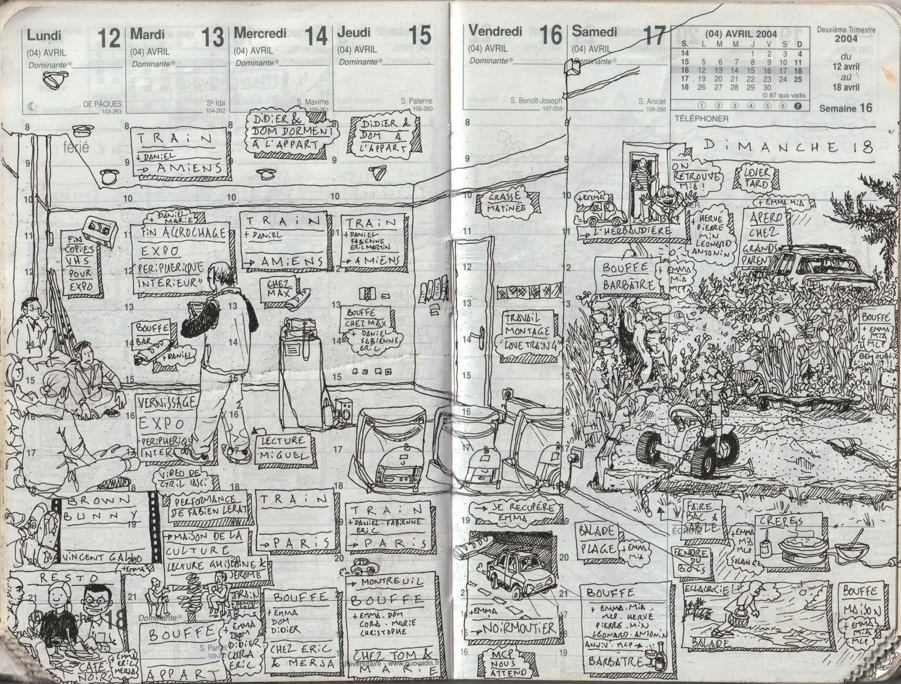 Lundi 12
(04) AVRIL
Dominante
DE PÂQUES
férié
FIN
COPIES
VHS
POUR
EXPO
BROWN
BUNNY
VINCENT GALLO
+ EMMA
RESTO
CAFÉ
NOIR
Mardi 13
(04) AVRIL
Dominante
Se Ida
TRAIN
+ DANIEL
→ AMIENS
FIN ACCROCHAGE
EXPO
PERIPHERIQUE
INTERIEUR"
BOUFFE
BAR
+ DANIEL
VERNISSAGE
EXPO
PERFORMANCE
DE FABIEN LERAT
→ MAISON DE LA
CULTURE
BOUFFE
APPART
Mercredi 14
(04) AVRIL
Dominante
S. Maxime
DIDIER &
DOM DORMENT
A L'APPART
TRAIN
+ DANIEL
→ AMIENS
CHEZ
MAX
LECTURE
MIGUEL
TRAIN
→ PARIS
BOUFFE
+ EMMA
DOM
DIDIER
CHEZ ERIC
& MERJA
Jeudi 15
(04) AVRIL
Dominante
S. Paterne
DIDIER &
DOM A
L'APPART
TRAIN
+ DANIEL
FABIENNE
ERIC MARTIN
→ AMIENS
BOUFFE
CHEZ MAX
+ DANIEL
FABIENNE
ERIC
TRAIN
+ DANIEL-FABIENNE
ERIC
→ PARIS
→ MONTREUIL
BOUFFE
+ EMMA DOM
CORA MARIE
CHRISTOPHE
CHEZ TOM &
Vendredi 16
(04) AVRIL
Dominante
S. Benoît-Joseph
GRASSE
MATINÉE
TRAVAIL
MONTAGE
LOVE TRAIN 4
→ SE RECUPÈRE
EMMA
+ EMMA
→ NOIRMOUTIER
MCP
NOUS
ATTEND
Samedi 17
(04) AVRIL
Dominante
S. Anicet
+ EMMA
ON
RETROUVE
MIA!
L'HERBAUDIERE
HERVE
PIERRE
MIN
LEONARD
ANTONIN
BOUFFE
BARBATRE
EMMA
MIA
MCP
BALADE
PLAGE
+ EMMA
MIA
BOUFFE
+ EMMA-MIA
MCP HERVE
PIERRE MIN
LEONARD ANTONIN
BARBATRE
(04) AVRIL 2004
S. L M M J V S D
14 1 2 3 4
15 5 6 7 8 9 10 11
16 12 13 14 15 16 17 18
17 19 20 21 22 23 24 25
18 26 27 28 29 30
© 87 quo vadis
1 2 3 4 5 6 7
TÉLÉPHONER
Deuxième Trimestre
2004
du
12 avril
au
18 avril
Semaine 16
DIMANCHE 18
LEVER
TARD
+ EMMA MIA
APERO
CHEZ
GRAND
PARENTS
BOUFFE
+ EMMA
MIA
MCP
FAIRE
SABLE
FENDRE
DU
BOIS
CREPES
+ EMMA
MIA
MCP
ECLAIRCIE
BALADE
BOUFFE
MAISON
+ EMMA
MIA
MCP